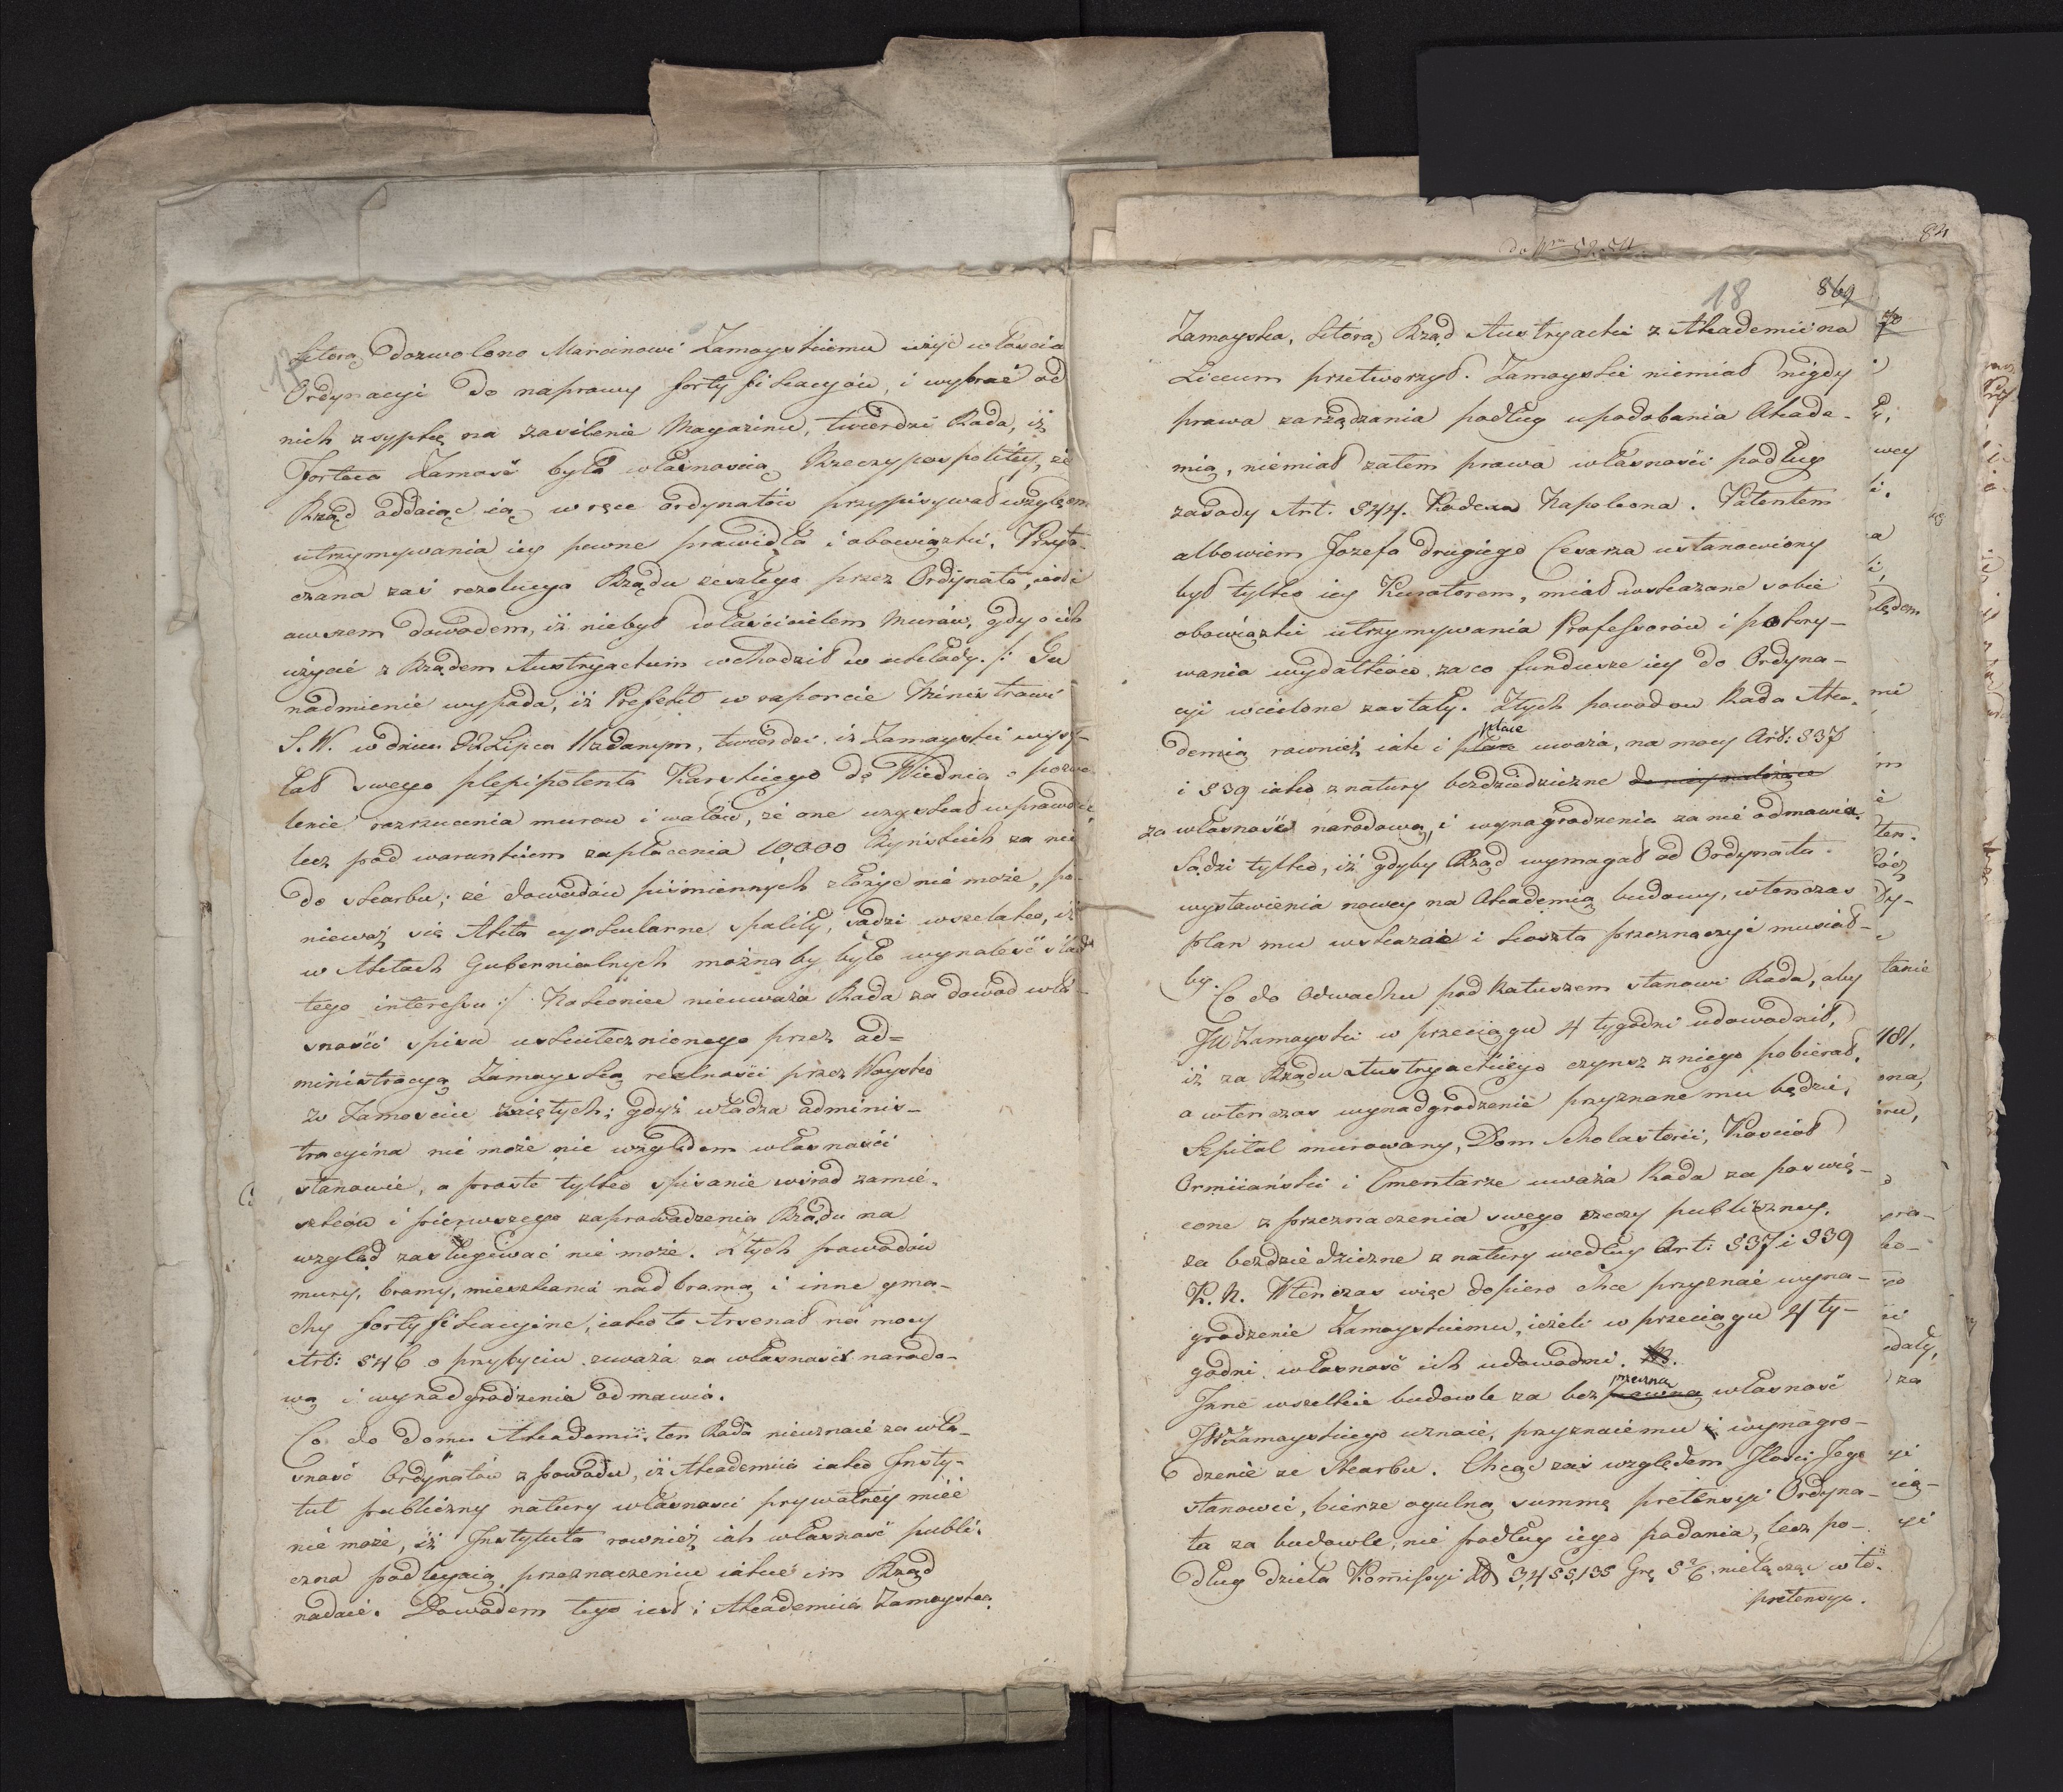 którą dozwolono Marcinowi Zamoyskiemu użyć włościan
Ordynacyi do naprawy fortyfikacyów, i wybrać od
nich zsypkę na zasilenie Magazinu, twierdzi Rada, iż
Forteca Zamość była własnością Rzeczypospolitey, że
Rząd oddaiąc ią w ręce ordynatów przypisywał względem
utrzymywania iey pewne prawidła i obowiązki. Przyto-
czana zaś rezolucya Rządu zeszłego przez Ordynata, iest
owszem dowodem, iż niebył właścicielem Murów, gdy o ich
użycie z Rządem Austryackim wchodził w układy. /: Tu
nadmienić wypada, iż Prefekt w raporcie Ministrowi
S. W. w dniu Lipca zdanym, twierdzi, iż Zamoyski wysy-
łał swego plenipotenta Karskiego do Wiednia o pozwo
lenie rozrzucenia murow i wałów, że one uzyskał wprawdzie,
lecz pod warunkiem zapłacenia 10,000 Ryńskich za nie
do skarbu; że dowodów piśmiennych złożyć nie może, po-
nieważ się Akta cyrkularne spaliły, sądzi wszelako, iż
w Aktach Gubernialnych możnaby było wynaleść ślad
tego interessu :/ Nakoniec nieuważa Rada za dowod wła-
sności spisu uskutecznionego przez ad=
ministracyą Zamoyską realności przez Woysko
w Zamościu zaiętych; gdyż władza adminis-
tracyina nie może nic względem własności
stanowić, a proste tylko spisanie wśrod zamie-
szków i pierwszego zaprowadzenia Rządu na
wzgląd zasługiwać nie może. Ztych powodów
mury, bramy, mieszkania nad bramą i inne gma-
chy fortyfikacyine, iako to Arsenał na mocy
Art: 546 o przybyciu uważa za własność narodo-
wą i wynadgrodzenia odmawia.
Co do domu Akademii, ten Rada nieuznaie za wła-
sność Ordynatów z powodu, iż Akademiia iako Insty-
tut publiczny natury własności prywatney mieć
nie może, iż Instytuta rownież iak własność publi-
czna podlegaią przeznaczeniu iakie im Rząd
nadaie. Dowodem tego iest i Akademiia Zamoyska.
do Nru 52.54.
84
18
869
70
Zamoyska, którą Rząd Austryacki z Akademii na
Liceum przetworzył. Zamoyski niemiał nigdy
prawa zarządzania podług upodobania Akade-
mią, niemiał zatem prawa własności podług
zasady Art. 544. Kodexa Napoleona. Patentem
albowiem Jozefa drugiego Cesarza ustanowiony
był tylko iey Kuratorem, miał wskazane sobie
obowiązki utrzymywania Professorów i pokry-
wania wydatków, za co fundusze iey do Ordyna-
cyi wcielone zastały. Ztych powodow Rada Aka-
place
demią rownież iak i plac uważa, na mocy Art: 537
i 539 iako z natury bezdziedziczne do niey należące
za własność narodową, i wynagrodzenia za nie odmawia.
Sądzi tylko, iż gdyby Rząd wymagał od Ordynata
wystawienia nowey na Akademią budowy, wtenczas
plan mu wskazać i koszta przeznaczyć musiał-
by. Co do Odwachu pod Ratuszem stanowi Rada, aby
JW Zamoyski w przeciągu 4 tygodni udowodnił,
iż za Rządu Austryackiego czynsz z niego pobierał,
a wtenczas wynadgrodzenie przyznane mu będzie.
Szpital murowany, Dom Scholasterii, Kościoł
Ormiiański i Cmentarze uważa Rada za poswię-
cone z przeznaczenia swego rzeczy publiczney,
za bezdziedziczne z natury według Art: 537 i 539
K. N. Wtenczas więc dopiero chce przyznać wyna-
grodzenie Zamoyskiemu, ieżeli w przeciągu 4 ty-
godni własność ich udowodni.
Jnne wszelkie budowle za bez własność
JW Zamoyskiego uznaie, przyznaie mu i wynagro-
dzenie ze Skarbu. Chcąc zaś względem Jlości Jego
stanowić, bierze ogulną summę pretensyi Ordyna-
ta za budowle, nie podług iego podania, lecz po-
dług dzieła Kom̃issyi 3,455,135 Gr. 5 2/6 nielącząc w to
pretensye.